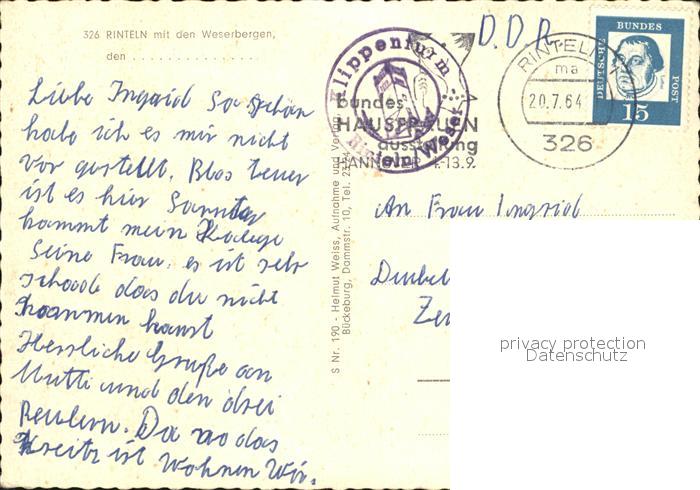 326 RINTELN mit den Weserbergen,
den . . . . . . . . . . . . . . .
Liebe Ingrid So schön
habe ich es mir nicht
vor gestellt. Blos teuer
ist es hier Sonntag
kommt mein Kolege
Seine Frau. es ist sehr
schade das du nicht
kommen kanst
Herzliche Grüße an
Mutti und den drei
Da wo das
Kreitz ist Wohnen Wir.
S Nr. 190 - Helmut Weiss, Aufnahme und Verlag
Bückeburg, Dammstr. 10, Tel. 23
Klippenturm
Rinteln/Weser
bundes
HAUSFRAUEN
ausstellung
HANNOVER 4.-13.9.
D.D.R
RINTELN
ma
20.7.64
326
DEUTSCHE
BUNDES
POST
15
An Frau Ingrid
privacy protection
Datenschutz